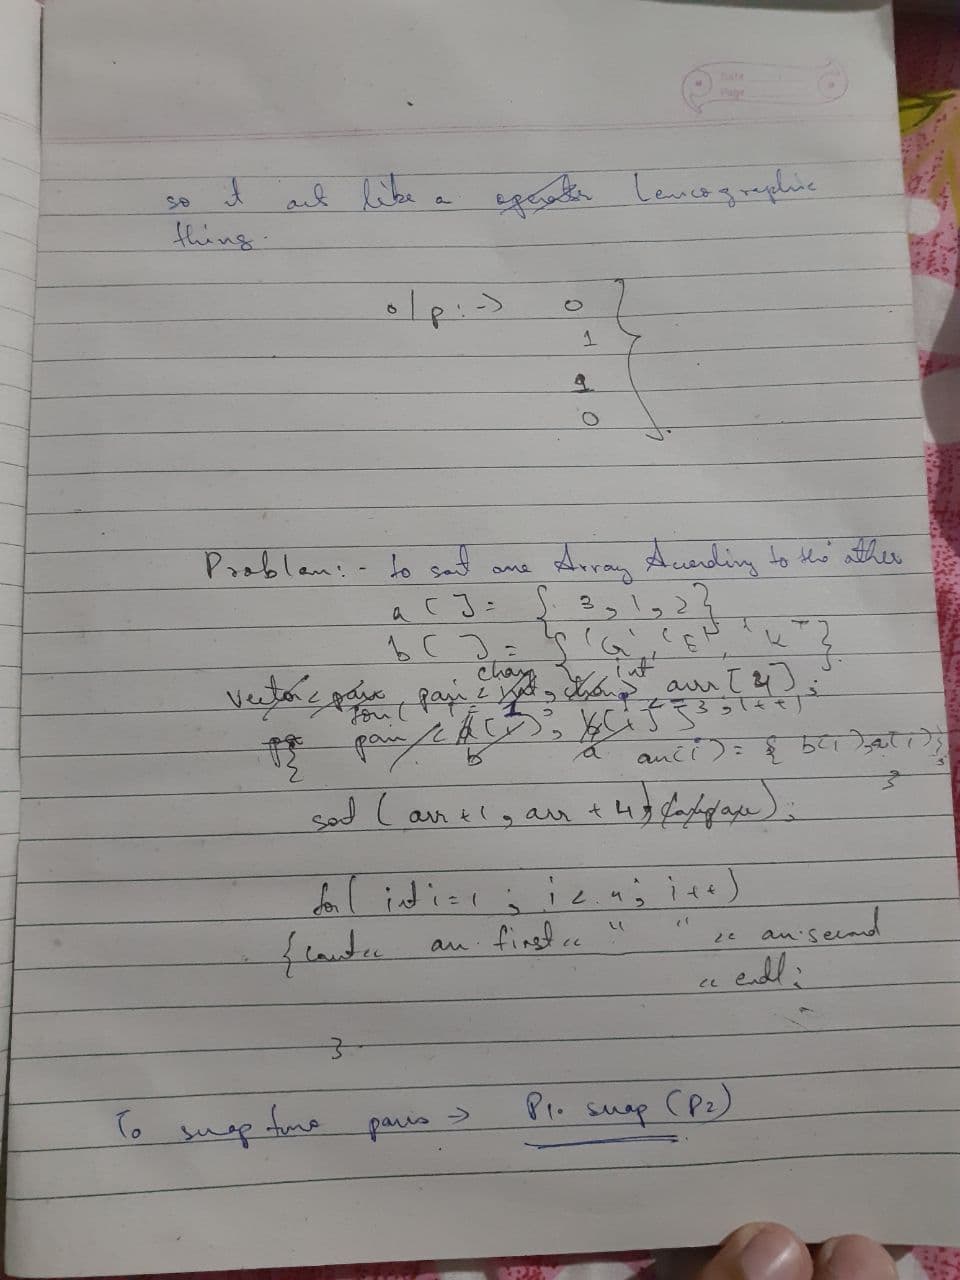 Date
Page
so it act like a operator Lexicographic
thing.
o/p :-> 0
1
1
0
Problem :- to sort one Array According to the other
a [ ] = { 3, 1, 2 }
b [ ] = { 'G', 'E', 'K' }
char int
vector < pair pair < int, char > arr [4];
for ( i = 1; i < 3, i++ )
pair < a[i], b[i] }
{ b a arr[i] = { b[i], a[i] };
}
sort ( arr + 1, arr + 4, );
for ( int i = 1 ; i < 4; i++ )
{ cout << arr. first << " " << arr. second
<< endl;
}
To swap two pairs -> P1. swap (P2)